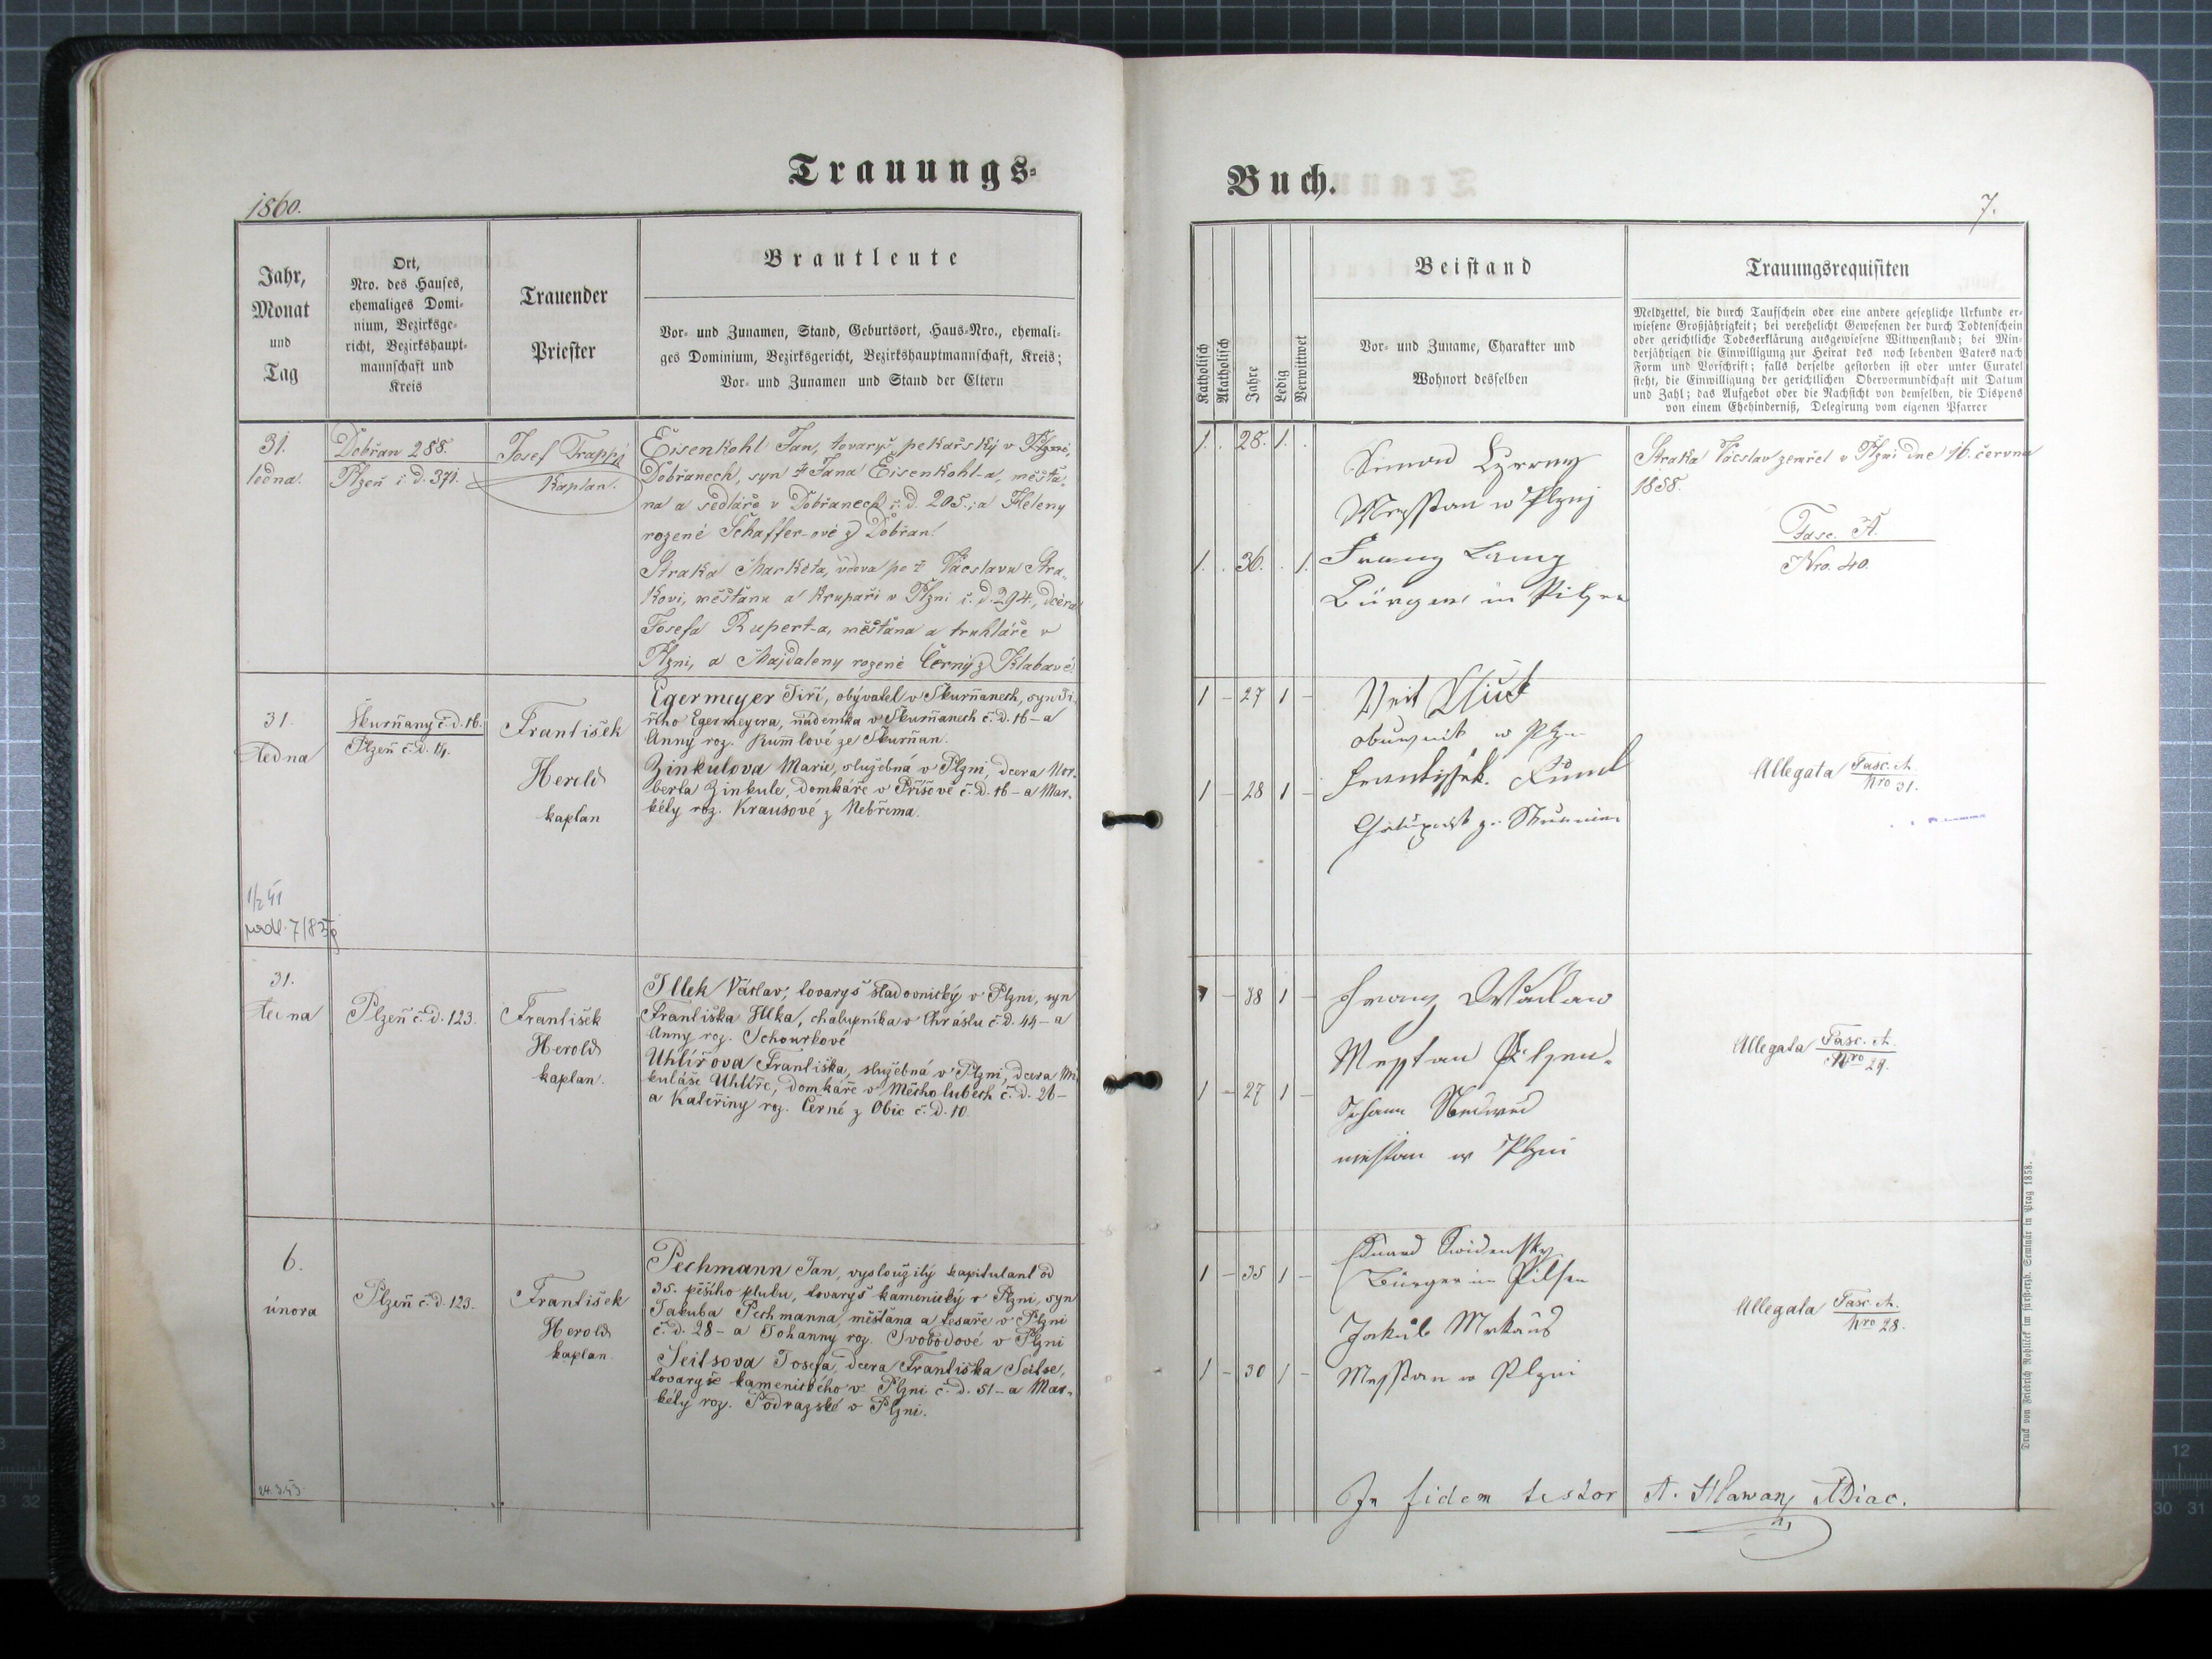 Trauungs-
1860.
Jahr,
Monat
und
Tag
Ort,
Nro. des Hauses,
ehemaliges Domi-
nium, Bezirksge-
richt, Bezirkshaupt-
mannschaft und
Kreis
Trauender
Priester
Brautleute
Vor- und Zunamen, Stand, Geburtsort, Haus-Nro., ehemali-
ges Dominium, Bezirksgericht, Bezirkshauptmannschaft, Kreis;
Vor- und Zunamen und Stand der Eltern
31.
ledna.
Dobřan 288.
Plzeň č. d. 371.
Josef
Kaplan.
Eisenkohl Jan, tovaryš pekařský v Plzni,
Dobřanech, syn † Jana Eisenkohl-a, měšťa-
na a sedláře v Dobřanech č. d. 205., a Heleny
rozené Schaffer-ové z Dobřan.
Straka Markéta, vdova po † Václavu Stra-
kovi, měšťanu a krupaři v Plzni č. d. 294., dcera
Josefa Rupert-a, měšťana a truhláře v
Plzni, a Majdaleny rozené Černý z Klabavé.
31.
ledna
Škurňany č. d. 16.
Plzeň č. d. 14.
František
Herold
kaplan
Egermeyer Jiří, obývatel v Škurňanech, syn Ji-
řího Egermeyera, nádeníka v Škurňanech č. d. 16 – a
Anny roz. Kumlové ze Škurňan.
Zinkulova Marie, služebná v Plzni, dcera Nor-
berta Zinkule, domkáře v Přišově č. d. 16 – a Mar-
kéty roz. Krausové z Nebřema.
31.
ledna
Plzeň č. d. 123.
František
Herold
kaplan.
Illek Václav, tovaryš sladovnický v Plzni, syn
Františka Illka, chalupníka v Chráslu č. d. 44 – a
Anny roz. Schourkové
Uhlířova Františka, služebná v Plzni, dcera Mi
kuláše Uhlíře, domkáře v Měcholubech č. d. 26 –
a Kateřiny roz. Černé z Obic č. d. 10.
6.
února
Plzeň č. d. 123.
František
Herold
kaplan.
Pechmann Jan, vysloužilý kapitulant od
35. pěšího pluku, tovaryš kamenický v Plzni, syn
Jakuba Pechmanna, měšťana a tesaře v Plzni
č. d. 28 – a Johanny roz. Svobodové v Plzni
Seitsova Josefa, dcera Františka Seitse,
tovaryše kamenického v Plzni č. d. 51 – a Mar-
kéty roz. Podrazské v Plzni.
24.3.43.
Buch.
7.
Katholisch
Akatholisch
Jahre
Ledig
Verwittwet
Beistand
Vor- und Zuname, Charakter und
Wohnort desselben
Trauungsrequisiten
Meldzettel, die durch Taufschein oder eine andere gesetzliche Urkunde er-
wiesene Großjährigkeit; bei verehelicht Gewesenen der durch Todtenschein
oder gerichtliche Todeserklärung ausgewiesene Wittwenstand; bei Min-
derjährigen die Einwilligung zur Heirat des noch lebenden Vaters nach
Form und Vorschrift; falls derselbe gestorben ist oder unter Curatel
steht, die Einwilligung der gerichtlichen Obervormundschaft mit Datum
und Zahl; das Aufgebot oder die Nachsicht von demselben, die Dispens
von einem Ehehinderniß, Delegirung vom eigenen Pfarrer
1. . 28. 1. .
Simon
Messtan w Plznj
1. . 36. . 1.
Franz Lang
Bürger in Pilzen
Straka Václav zemřel v Plzni dne 16. června
1858.
Fasc. A.
Nro. 40.
1 – 27 1 –
Veit
obuwnik w
1 – 28 1 –
Frantissek
Allegata Fasc. A
Nro 31.
1 – 38 1 –
Franz
Messtan Pilzen
1 – 27 1 –
Johann
miesstan w Plzni
Allegata Fasc. A.
Nro 29.
1 – 35 1 –
Eduard Swidensky
Bürger in Pilsen
Jakub
1 – 30 1 –
Messtan w Plzni
Allegata Fasc. A.
Nro 28.
In fidem testor A. Hlawan ADiac.
Druck von Friedrich Rohliček im fürsterzb. Seminär in Prag 1858.